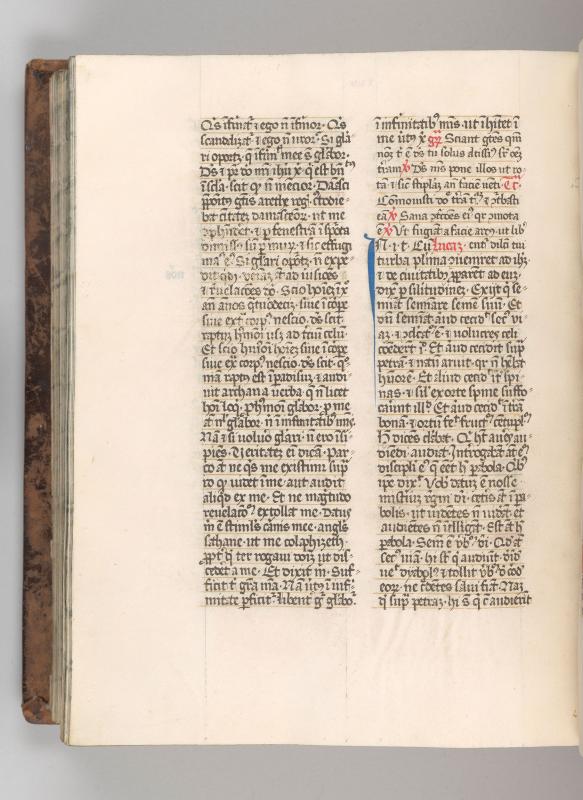 Q's ifirmat̄ ⁊ ego n̄ ifirmor · Q's
scandalizat̄ ⁊ ego n̄ uror · Si gła-
ri oportȝ · q̄ ifirmi[t] mee s̄ głabor ·
Ds̄ ⁊ pr̄ dn̄i nr̄i ihu x̄ · q̄ est bn̄ctus
i scła · scit q̄ n̄ mencior · Damasci
p̄posit' gn̄tis arethe regł · c'todie-
bat ciuitatē damascēor · ut me
ɔp̄hn̄det · ⁊ p̄ fenestrā i spōta
dimiss' sū p̄ mur̄ · ⁊ sic effugi
man' ei' · Si głari oportȝ · n̄ expe-
dit qidē · ueniā āt ad uisiōes
⁊ r̄uelacōes dn̄i · Scio hoīeȝ i x̄
an̄ ānos q̄tuordeciȝ · siue i corp̄e
siue ext̄ corp' nescio · ds̄ scit ·
raptū hmōi usqȝ ad t̄ciū celū ·
Et scio hmōi hoīeȝ siue i corp̄e
siue ex̄ corp' · nescio · ds̄ scit · q̄m
rapt' est i padisuȝ · ⁊ audi-
uit archana uerba · q̄ n̄ licet
hōi loqi · p̄ h'mōi głabor · p̄ me
āt n̄ głabor · n̄ i infirmitatib' meis
Nā ⁊ si uoluo głari · n̄ ero isi-
piēs · Ueritatē ei dicā · Par-
co āt ne q's me existimet sup̄
id q̄ uidet i me · aut audit
aliq̄d ex me · Et ne mag̃tudo
reuelacōȝ extollat me · Datus
m̄ ē stimł's carnis mee · angł's
sathane · ut me colaphizeth ·
p̄pt̄ q̄d ter rogaui dn̄iȝ ut dis-
cedet a me · Et dixit m̄ · Suf-
ficit t̄ gr̄a mea · Nā uirt' i infir-
mitate p̄ficit̄ · libent̄ g̊ głabor
i infirmitatib' meis · ut ihitet i
me uirt' x̄ · Gr̄ Sciant gn̄tes qm̄
nom̄ t̄ ē ds̄ tu solus altissi' sr̄ oēȝ
t̄ram V̄ Ds̄ ms̄ pone illos ut ro-
tā · ⁊ sic stiplaȝ an̄ faciē uenti · Tc̄
Cōmouisti dn̄e t̄rā · ⁊ ɔt̄basti
eā V̄ Sana ɔt̄cōes ei' qr̄ mota
ē V̄ Ut fugiāt a facie arc' · ut lib
N · i · t · Cū Lucaȝ cū
turba plima ɔuenirent ad ihȝ ·
⁊ de ciuitatib' p̄parēt ad eū ·
dix̄ p̄ silitudineȝ · Exijt q̄ se-
mināt seminare semē suū · Et
dū seminat aliud cecid' sec' ui-
aȝ · ⁊ ɔculcat' ē · ⁊ uolucres celi
comederūt il̄d · Et aliud cecidit sup̄
petrā · ⁊ natū aruit · qr̄ n̄ hēbat
humorē · Et aliud cecid' it̄ spi-
nas · ⁊ sił' exorte spine suffo-
cauūt illd · Et aliud cecid' i t̄rā
bonā · ⁊ ortū fec̄ fruct' cētuplū
H̄ dices clābat · Q' hēt aures au-
diēdi · audiat · Int̄rogabāt āt eū
discipłi ei' q̄ eēt h̄ p̄abola · Qib'
ipē dix̄ · Vob' datuȝ ē nosse
misteriū regni di · cetis āt i pa-
bolis · ut uidētes n̄ uideāt · ⁊
audiētes n̄ itelligāt · Est āt h̄
p̄abola · Sem̄ ē ūbū di · Qd āt
sec' uiā · hi st̄ q̄ audiunt · dīd
uēit dyabol' ⁊ tollit ūbū d̄ cōd'
eor · ne c̄dētes salui fiāt · Naȝ
q̄ sup̄ petraȝ · hi s̄ q̄ c̄ audierīt